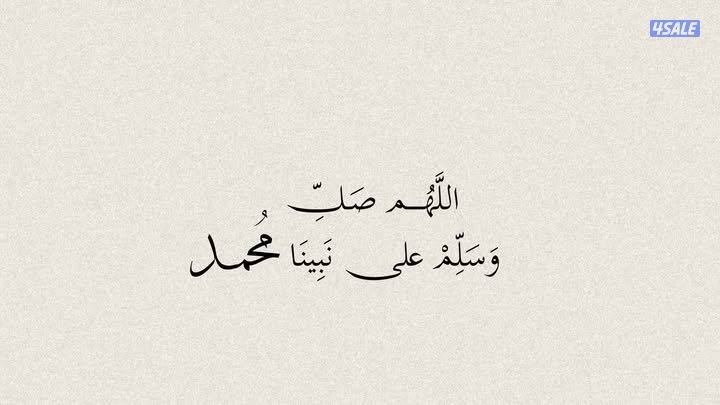 4SALE
اللَّهُـم صَلِّ
وَسَلِّمْ على نَبِينَا مُحمد